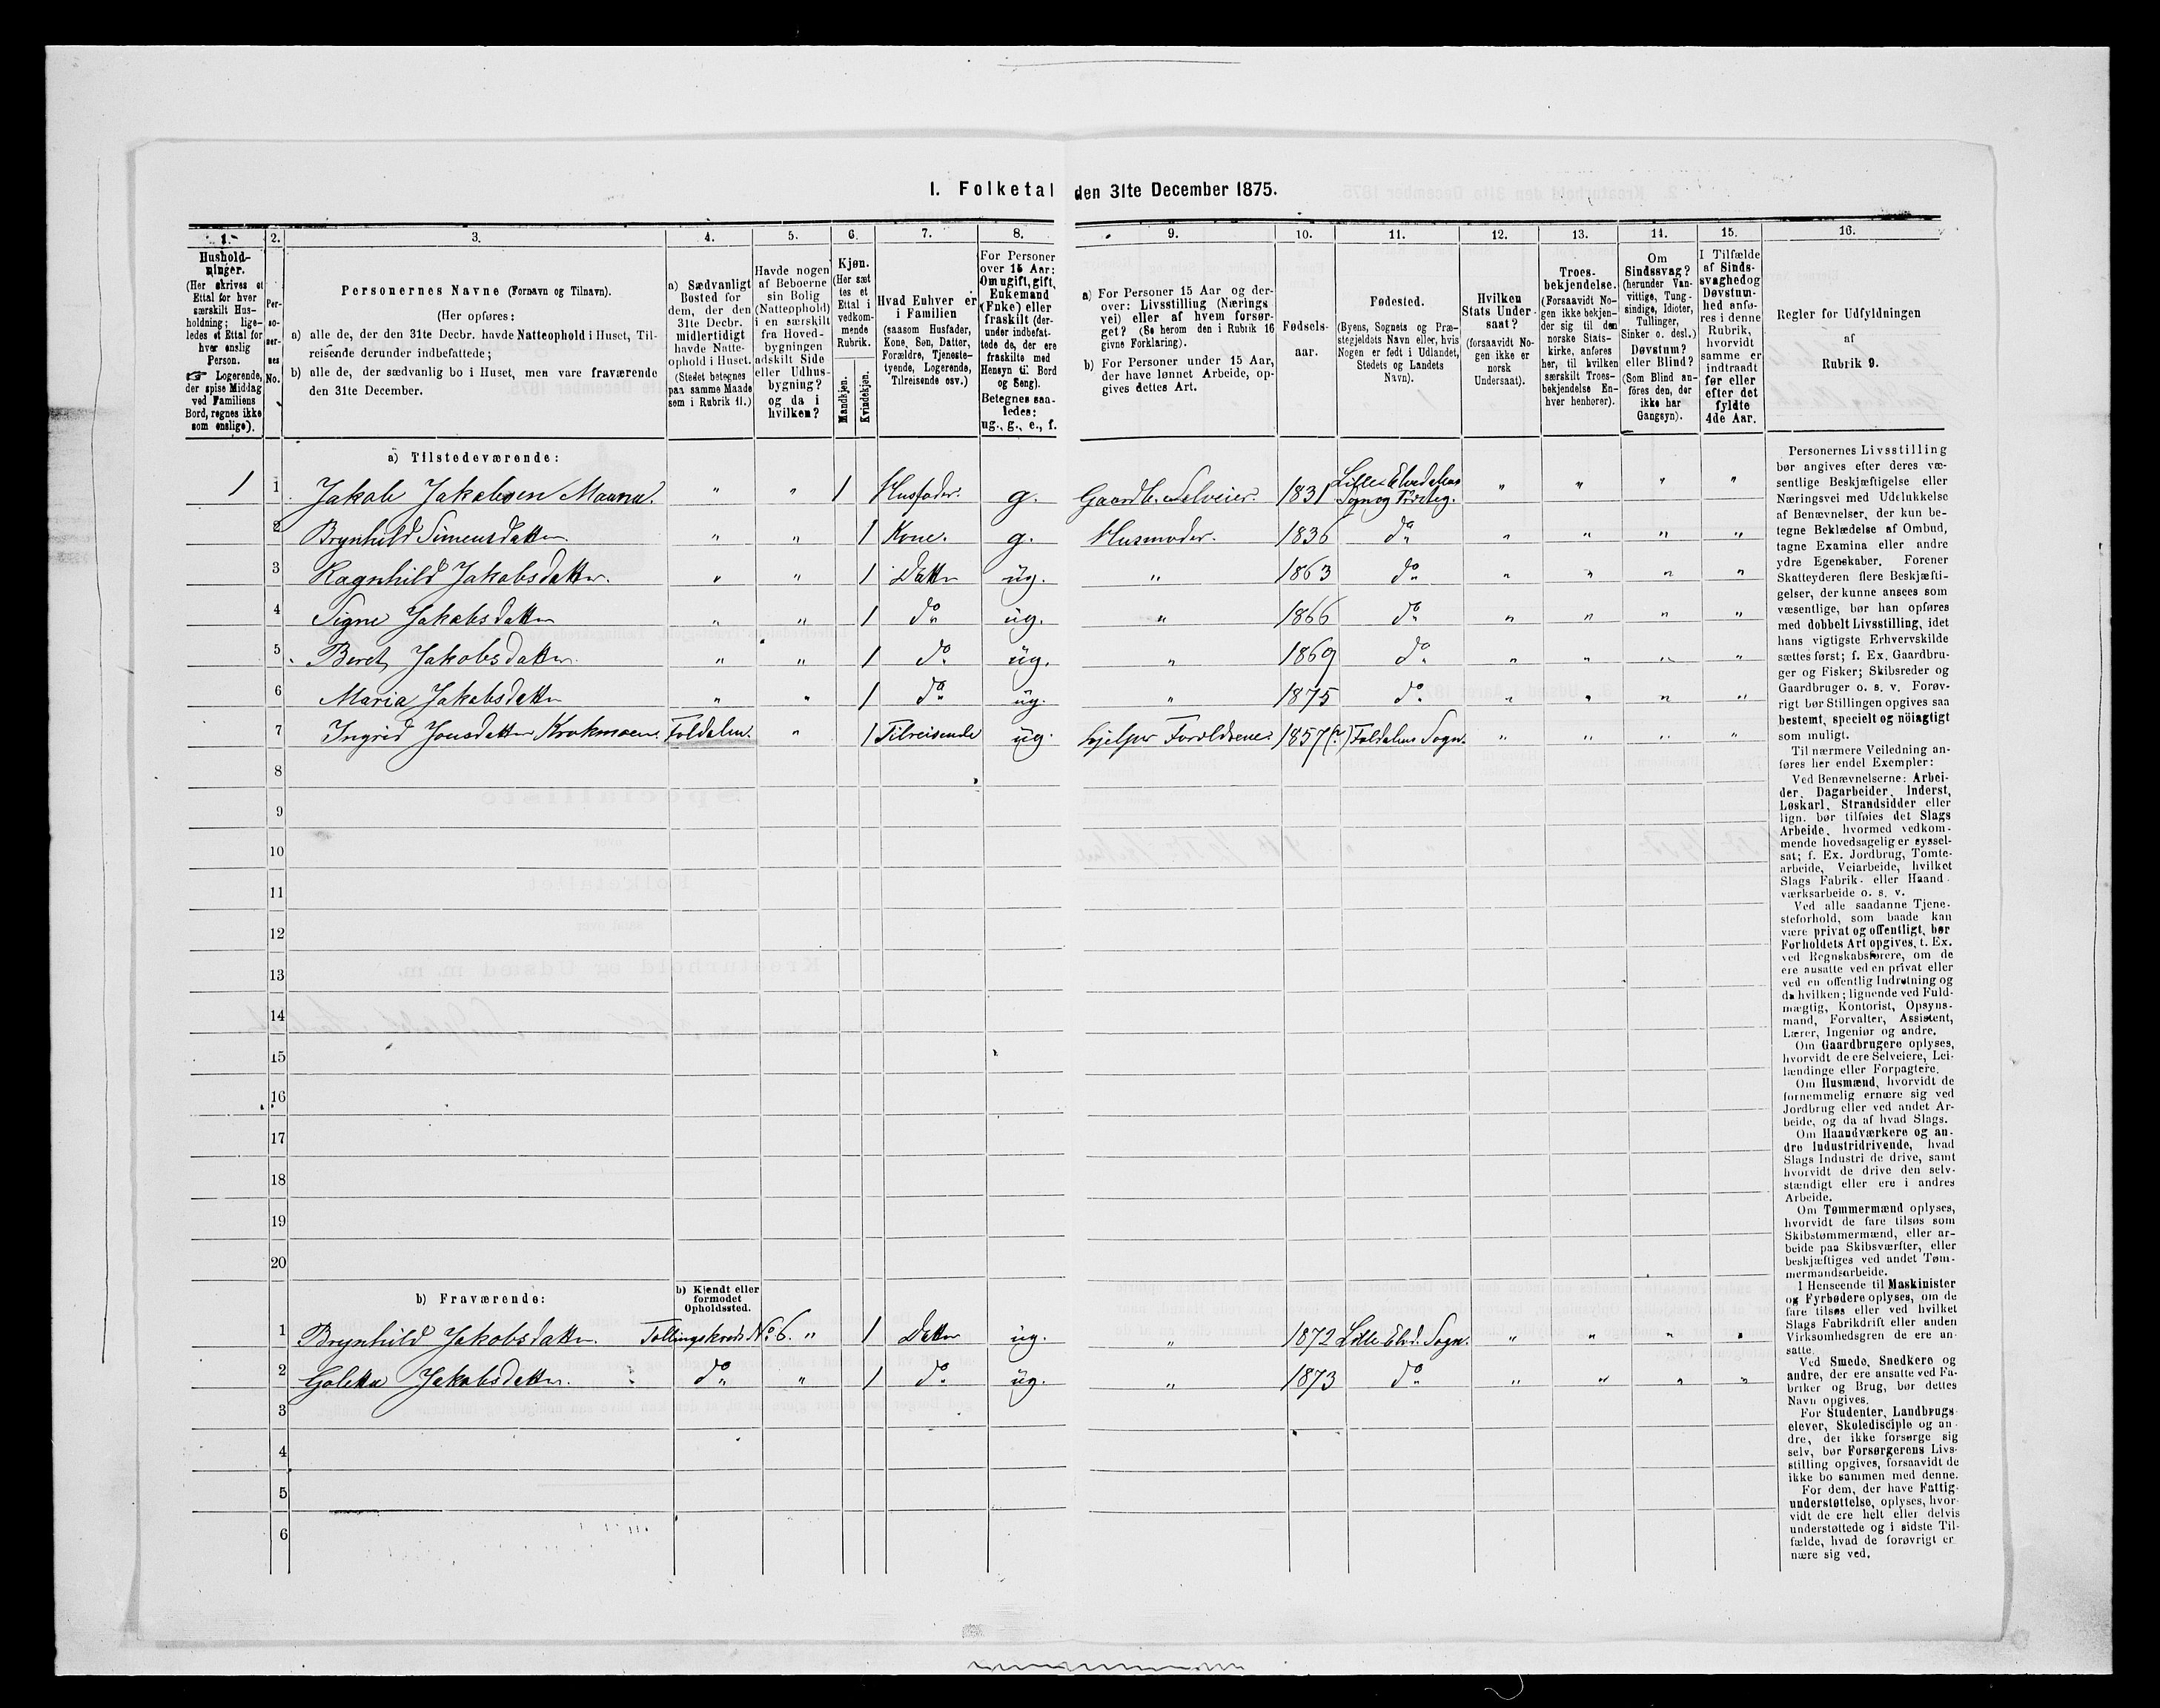 I. Folketal den 31te December 1875.
1. 2. 3. 4. 5. 6. 7. 8. 9. 10. 11. 12. 13. 14. 15. 16.
Hushold-
ninger.
(Her skrives et
Ettal for hver
særskilt Hus-
holdning; lige-
ledes et Ettal for
hver enslig
Person.
☞ Logerende,
der spise Middag
ved Familiens
Bord, regnes ikke
som enslige).
Per-
so-
ner-
nes
No.
Personernes Navne (Fornavn og Tilnavn).
(Her opføres:
a) alle de, der den 31te Decbr. havde Natteophold i Huset, Til-
reisende derunder indbefattede;
b) alle de, der sædvanlig bo i Huset, men vare fraværende
den 31te December.
a) Sædvanligt
Bosted for
dem, der den
31te Decbr.
midlertidigt
havde Natte-
ophold i Huset.
(Stedet betegnes
paa samme Maade
som i Rubrik 11.)
Havde nogen
af Beboerne
sin Bolig
(Natteophold)
i en særskilt
fra Hoved-
bygningen
adskilt Side
eller Udhus-
bygning?
og da i
hvilken?
Kjøn.
(Her sæt
tes et
Ettal i
vedkom-
mende
Rubrik.
Mandkjøn.
Kvindekjøn.
Hvad Enhver er
i Familien
(saasom Husfader,
Kone, Søn, Datter,
Forældre, Tjeneste-
tyende, Logerende,
Tilreisende osv.)
For Personer
over 15 Aar:
Om ugift, gift,
Enkemand
(Enke) eller
fraskilt (der-
under indbefat-
tede de, der ere
fraskilte med
Hensyn til Bord
og Seng).
Betegnes saa-
ledes:
ug., g., e., f.
a) For Personer 15 Aar og der-
over: Livsstilling (Nærings
vei) eller af hvem forsør-
get? (Se herom den i Rubrik 16
givne Forklaring).
b) For Personer under 15 Aar,
der have lønnet Arbeide, op-
gives dettes Art.
Fødsels-
aar.
Fødested.
(Byens, Sognets og Præ-
stegjeldets Navn eller, hvis
Nogen er født i Udlandet,
Stedets og Landets
Navn).
Hvilken
Stats Under-
saat?
(forsaavidt No-
gen ikke er
norsk
Undersaat).
Troes-
bekjendelse.
(Forsaavidt No-
gen ikke bekjen-
der sig til den
norske Stats-
kirke, anføres
her, til hvilken
særskilt Troes-
bekjendelse En-
hver henhører).
Om
Sindssvag?
(herunder Van-
vittige, Tung-
sindige, Idioter,
Tullinger,
Sinker o. desl.)
Døvstum?
eller Blind?
(Som Blind an-
føres den, der
ikke har
Gangsyn).
I Tilfælde
af Sinds-
svaghedog
Døvstum-
hed anfø-
res i denne
Rubrik,
hvorvidt
samme er
indtraadt
før eller
efter det
fyldte
4de Aar.
Regler for Udfyldningen
af
Rubrik 9.
a) Tilstedeværende:
1 1 Jakob Jakobsen Maana. " " 1 Husfader. g. Gaardb. Selveier. 1831 Lille Elvedalens
Sogn og Præsteg. " " " "
2 Brynhild Simensdatter. " " 1 Kone. g. Husmoder. 1836 do " " " "
3 Ragnhild Jakobsdatter. " " 1 Datter ug. " 1863 do " " " "
4 Signe Jakobsdatter " " 1 do ug. " 1866 do " " " "
5 Beret Jakobsdatter. " " 1 do ug. " 1869 do " " " "
6 Maria Jakobsdatter " " 1 do ug. " 1875 do " " " "
7 Ingrid Jonsdatter Krokmoen. Foldalen. " 1 Tilreisende ug. hjelper Forældrene. 1857 (?) Foldalens Sogn. " " " "
8
9
10
11
12
13
14
15
16
17
18
19
20
b) Fraværende:
b) Kjendt eller
formodet
Opholdssted.
1 Brynhild Jakobsdatter. Tellingskreds No 6. " 1 Datter ug. " 1872 Lille Elvd. Sogn. " " " "
2 Goletta Jakobsdatter. do " 1 do ug. " 1873 do " " " "
3
4
5
6
Personernes Livsstilling
bør angives efter deres væ-
sentlige Beskjæftigelse eller
Næringsvei med Udelukkelse
af Benævnelser, der kun be-
tegne Beklædelse af Ombud,
tagne Examina eller andre
ydre Egenskaber. Forener
Skatteyderen flere Beskjæfti-
gelser, der kunne ansees som
væsentlige, bør han opføres
med dobbelt Livsstilling, idet
hans vigtigste Erhvervskilde
sættes først; f. Ex. Gaardbru-
ger og Fisker; Skibsreder og
Gaardbruger o. s. v. Forøv-
rigt bør Stillingen opgives saa
bestemt, specielt og nöiagtigt
som muligt.
Til nærmere Veiledning an-
føres her endel Exempler:
Ved Benævnelserne: Arbei-
der, Dagarbeider, Inderst,
Løskarl, Strandsidder eller
lign. bør tilføies det Slags
Arbeide, hvormed vedkom-
mende hovedsagelig er syssel-
sat; f. Ex. Jordbrug, Tomte-
arbeide, Veiarbeide, hvilket
Slags Fabrik- eller Haand-
værksarbeide o. s. v.
Ved alle saadanne Tjene-
steforhold, som baade kan
være privat og offentligt, bør
Forholdets Art opgives, t. Ex.
ved Regnskabsførere, om de
ere ansatte ved en privat eller
ved en offentlig Indretning og
da hvilken; lignende ved Fuld-
mægtig, Kontorist, Opsyns-
mand, Forvalter, Assistent,
Lærer, Ingeniør og andre.
Om Gaardbrugere oplyses,
hvorvidt de ere Selveiere, Lei-
lændinge eller Forpagtere.
Om Husmænd, hvorvidt de
fornemmelig ernære sig ved
Jordbrug eller ved andet Ar-
beide, og da af hvad Slags.
Om Haandværkere og an-
dre Industridrivende, hvad
Slags Industri de drive, samt
hvorvidt de drive den selv-
stændigt eller ere i andres
Arbeide.
Om Tømmermænd oplyses,
hvorvidt de fare tilsøs som
Skibstømmermænd, eller ar-
beide paa Skibsværfter, eller
beskjæftiges ved andet Tøm-
mermandsarbeide.
I Henseende til Maskinister
og Fyrbødere oplyses, om de
fare tilsøs eller ved hvilket
Slags Fabrikdrift eller anden
Virksomhedsgren de ere an-
satte.
Ved Smede, Snedkere og
andre, der ere ansatte ved Fa-
briker og Brug, bør dettes
Navn opgives.
For Studenter, Landbrugs-
elever, Skoledisciple og an-
dre, der ikke forsørge sig
selv, bør Forsørgerens Livs-
stilling opgives, forsaavidt de
ikke bo sammen med denne.
For dem, der have Fattig-
understøttelse, oplyses, hvor-
vidt de ere helt eller delvis
understøttede og i sidste Til-
fælde, hvad de forøvrigt er-
nære sig ved.